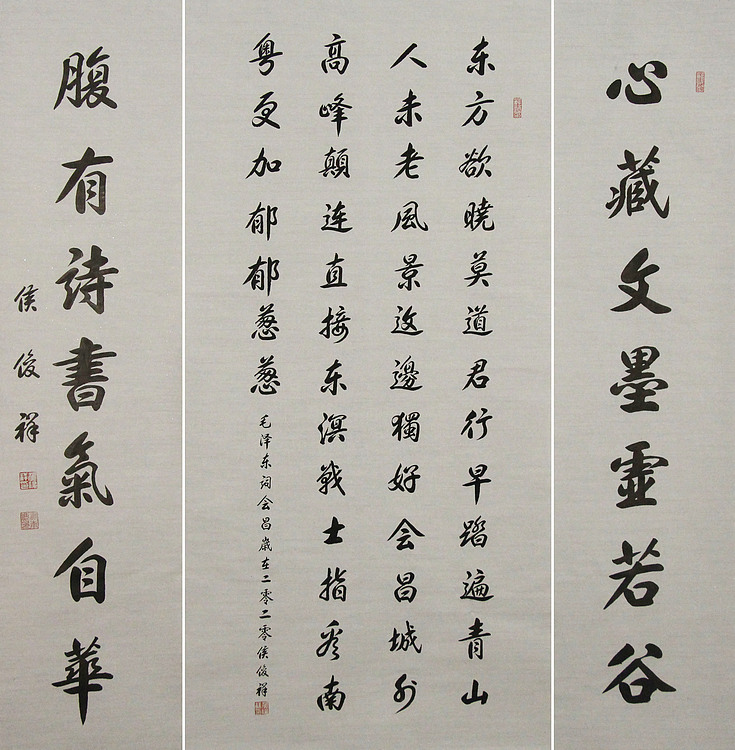 心藏文墨虚若谷
东方欲曉莫道君行早踏遍青山
人未老風景这邊獨好会昌城外
高峰顛连直接东溟戰士指看南
粤更加郁郁葱葱
毛泽东词会昌歲在二零二零侯俊祥
腹有詩書氣自華
侯俊祥